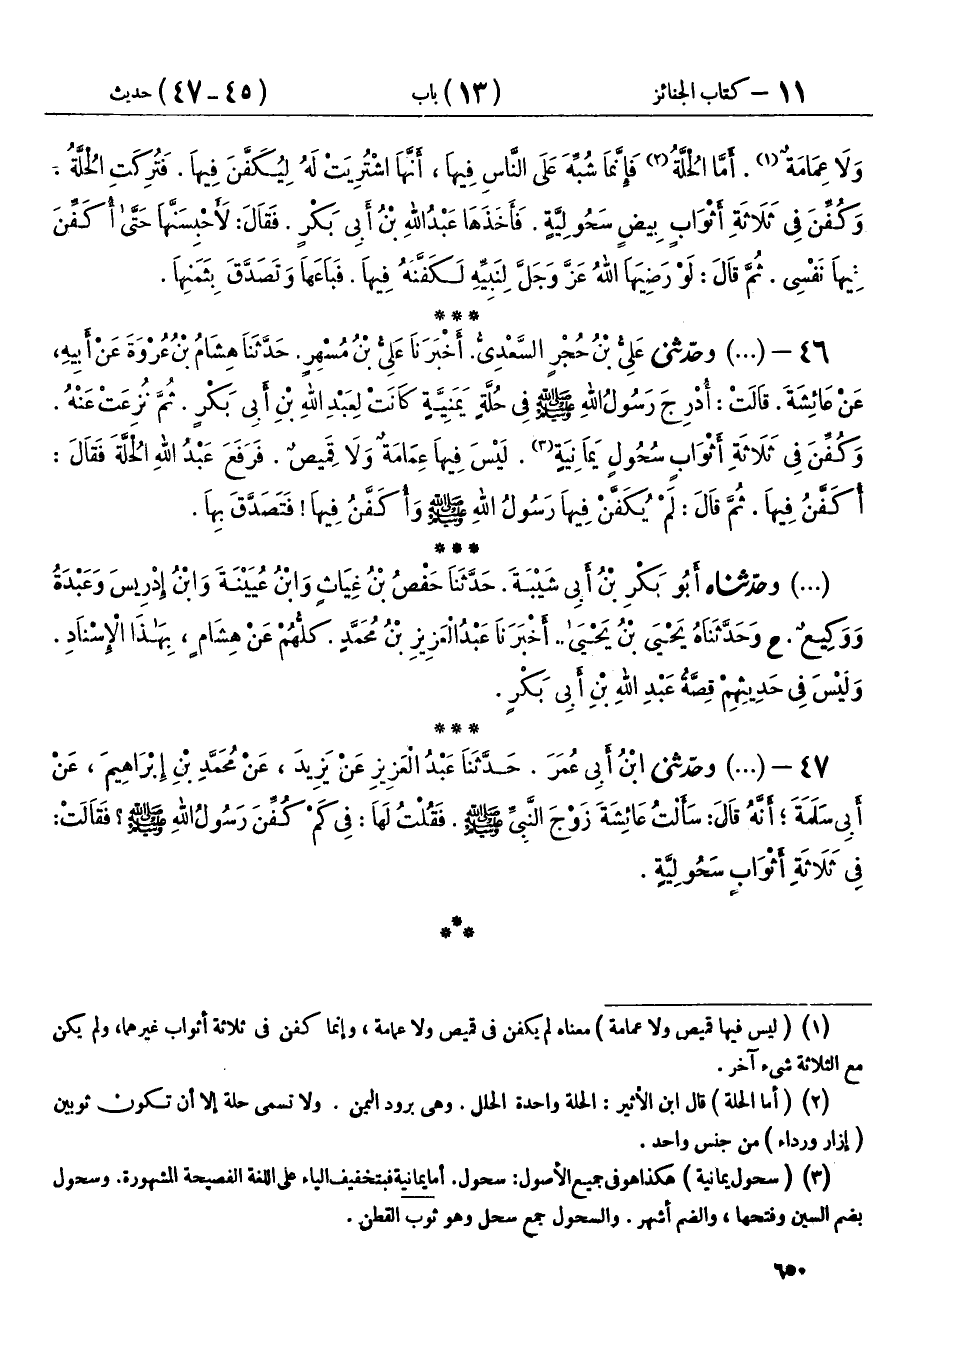 ١١ – كتاب الجنائز (١٣) باب (٤٥ – ٤٧) حديث
وَلَا عِمَامَةٌ (١) . أَمَّا الْحُلَّةُ (٢) فَإِنَّمَا شُبِّهَ عَلَى النَّاسِ فِيهَا ، أَنَّهَا اشْتُرِيَتْ لَهُ لِيُكَفَّنَ فِيهَا . فَتُرِكَتِ الْحُلَّةُ .
وَكُفِّنَ فِي ثَلَاثَةِ أَثْوَابٍ بِيضٍ سَحُولِيَّةٍ . فَأَخَذَهَا عَبْدُ اللهِ بْنُ أَبِي بَكْرٍ . فَقَالَ : لَأَحْبِسَنَّهَا حَتَّىٰ أُكَفِّنَ
فِيهَا نَفْسِي . ثُمَّ قَالَ : لَوْ رَضِيَهَا اللهُ عَزَّ وَجَلَّ لِنَبِيِّهِ لَكَفَّنَهُ فِيهَا . فَبَاعَهَا وَتَصَدَّقَ بِثَمَنِهَا .
***
٤٦ – (...) وحدثني عَلِيُّ بْنُ حُجْرٍ السَّعْدِيُّ . أَخْبَرَنَا عَلِيُّ بْنُ مُسْهِرٍ . حَدَّثَنَا هِشَامُ بْنُ عُرْوَةَ عَنْ أَبِيهِ ،
عَنْ عَائِشَةَ . قَالَتْ : أُدْرِجَ رَسُولُ اللهِ ﷺ فِي حُلَّةٍ يَمَنِيَّةٍ كَانَتْ لِعَبْدِ اللهِ بْنِ أَبِي بَكْرٍ . ثُمَّ نُزِعَتْ عَنْهُ .
وَكُفِّنَ فِي ثَلَاثَةِ أَثْوَابٍ سُحُولٍ يَمَانِيَةٍ (٣) . لَيْسَ فِيهَا عِمَامَةٌ وَلَا قَمِيصٌ . فَرَفَعَ عَبْدُ اللهِ الْحُلَّةَ فَقَالَ :
أُكَفَّنُ فِيهَا . ثُمَّ قَالَ : لَمْ يُكَفَّنْ فِيهَا رَسُولُ اللهِ ﷺ وَأُكَفَّنُ فِيهَا ! فَتَصَدَّقَ بِهَا .
***
(...) وحدثناه أَبُو بَكْرِ بْنُ أَبِي شَيْبَةَ . حَدَّثَنَا حَفْصُ بْنُ غِيَاثٍ وَابْنُ عُيَيْنَةَ وَابْنُ إِدْرِيسَ وَعَبْدَةُ
وَوَكِيعٌ . ح وَحَدَّثَنَاهُ يَحْيَى بْنُ يَحْيَىٰ .. أَخْبَرَنَا عَبْدُ الْعَزِيزِ بْنُ مُحَمَّدٍ . كُلُّهُمْ عَنْ هِشَامٍ ، بِهَـٰذَا الْإِسْنَادِ .
وَلَيْسَ فِي حَدِيثِهِمْ قِصَّةُ عَبْدِ اللهِ بْنِ أَبِي بَكْرٍ .
***
٤٧ – (...) وحدثني ابْنُ أَبِي عُمَرَ . حَدَّثَنَا عَبْدُ الْعَزِيزِ عَنْ يَزِيدَ ، عَنْ مُحَمَّدِ بْنِ إِبْرَاهِيمَ ، عَنْ
أَبِي سَلَمَةَ ؛ أَنَّهُ قَالَ : سَأَلْتُ عَائِشَةَ زَوْجَ النَّبِيِّ ﷺ . فَقُلْتُ لَهَا : فِي كَمْ كُفِّنَ رَسُولُ اللهِ ﷺ ؟ فَقَالَتْ :
فِي ثَلَاثَةِ أَثْوَابٍ سَحُولِيَّةٍ .
***
(١) ( ليس فيها قميص ولا عمامة ) معناه لم يكفن فى قميص ولا عمامة ، وإنما كفن فى ثلاثة أثواب غيرهما، ولم يكن
مع الثلاثة شىء آخر .
(٢) ( أما الحلة ) قال ابن الأثير : الحلة واحدة الحلل . وهى برود اليمن . ولا تسمى حلة إلا أن تكون ثوبين
( إزار ورداء ) من جنس واحد .
(٣) ( سحول يمانية ) هكذا هو فى جميع الأصول : سحول. أما يمانية فبتخفيف الياء على اللغة الفصيحة المشهورة. وسحول
بضم السين وفتحها ، والضم أشهر . والسحول جمع سحل وهو ثوب القطن .
٦٥٠